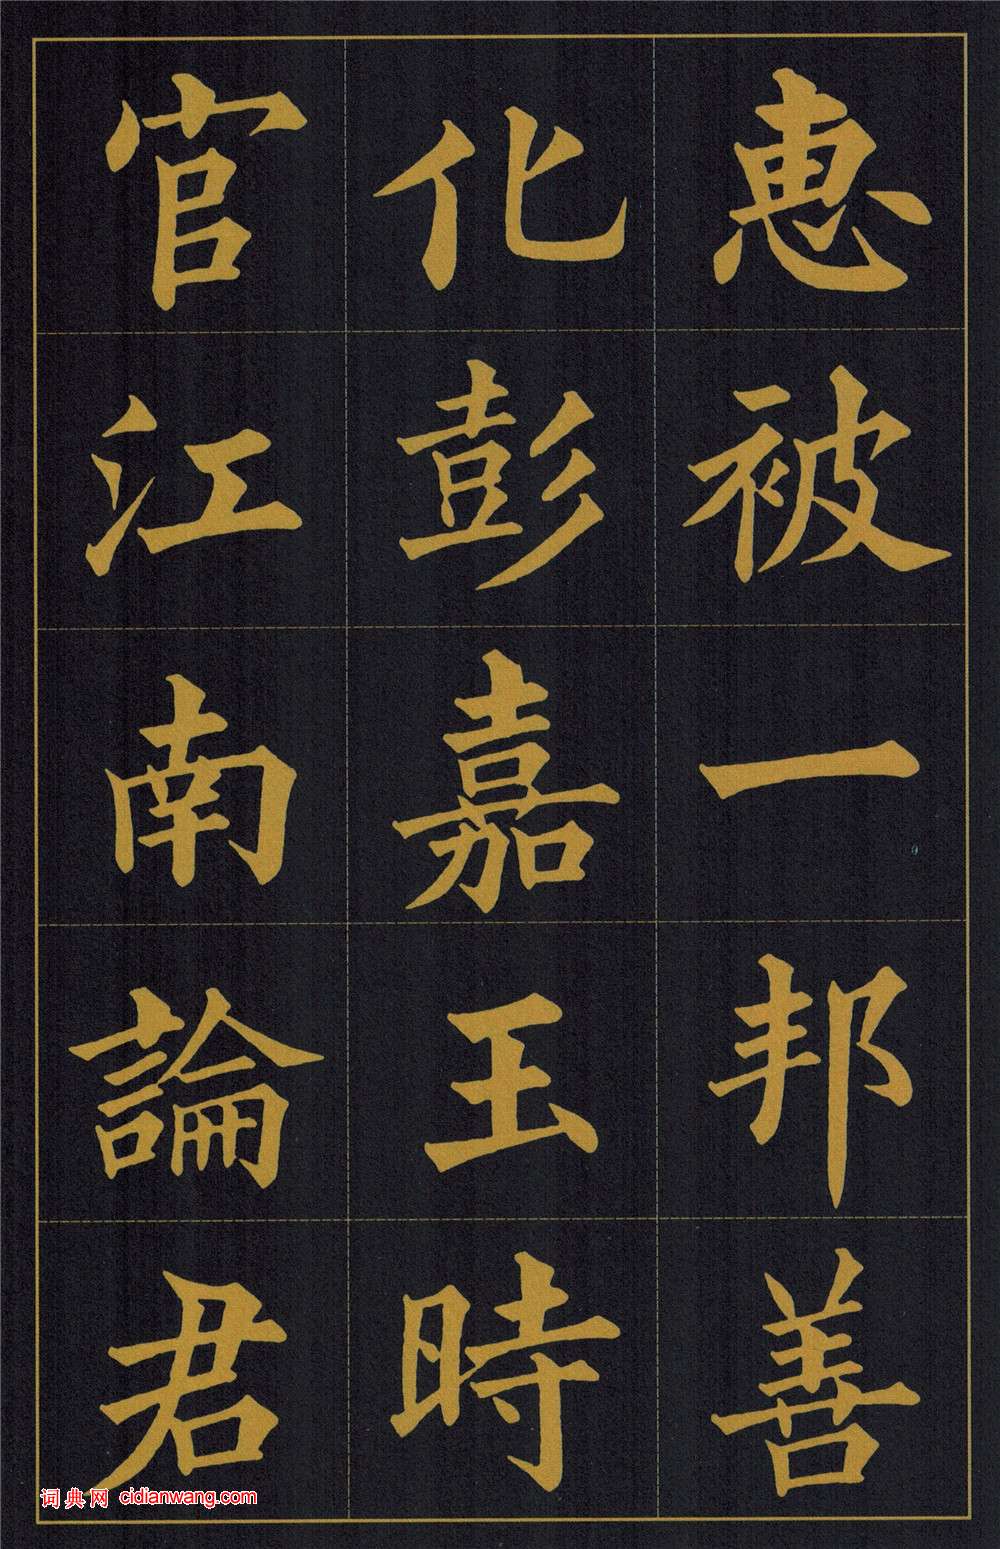 惠被一邦善
化彭嘉王時
官江南論君
词典网 cidianwang.com